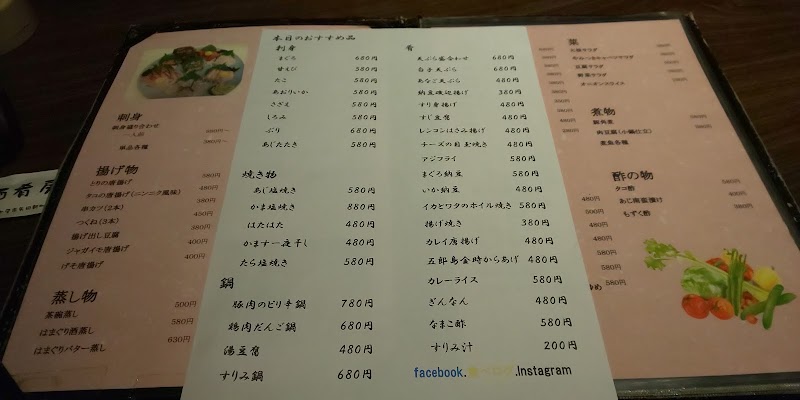 本日のおすすめ品
刺身
まぐろ 680円
甘えび 580円
たこ 580円
あおりいか 580円
さざえ 580円
しろみ 580円
ぶり 680円
あじたたき 580円
焼き物
あじ塩焼き 580円
かま塩焼き 880円
はたはた 480円
かます一夜干し 480円
たら塩焼き 580円
鍋
豚肉のピリ辛鍋 780円
鶏肉だんご鍋 680円
湯豆腐 480円
すりみ鍋 680円
肴
天ぷら盛合わせ 680円
白子天ぷら 680円
あなご天ぷら 480円
納豆磯辺揚げ 380円
すり身揚げ 480円
すじ豆腐 480円
レンコンはさみ揚げ 480円
チーズの目玉焼き 480円
アジフライ 580円
まぐろ納豆 580円
いか納豆 480円
イカとワタのホイル焼き 580円
揚げ焼き 380円
カレイ唐揚げ 480円
五郎島金時からあげ 480円
カレーライス 580円
ぎんなん 480円
なまこ酢 580円
すりみ汁 200円
facebook.食べログ.Instagram
刺身
刺身盛り合わせ
一人前
単品各種
揚げ物
とりの唐揚げ
タコの唐揚げ(ニンニク風味) 380円
串カツ(2本) 450円
つくね(3本) 400円
揚げ出し豆腐 400円
ジャガイモ唐揚げ 400円
げそ唐揚げ 400円
蒸し物
茶碗蒸し 500円
はまぐり酒蒸し 580円
はまぐりバター蒸し 630円
菜
豆腐サラダ
野菜サラダ
オニオンスライス
煮物
肉豆腐(小鍋仕立)
酢の物
タコ酢 480円
あじ南蛮漬け
もずく酢